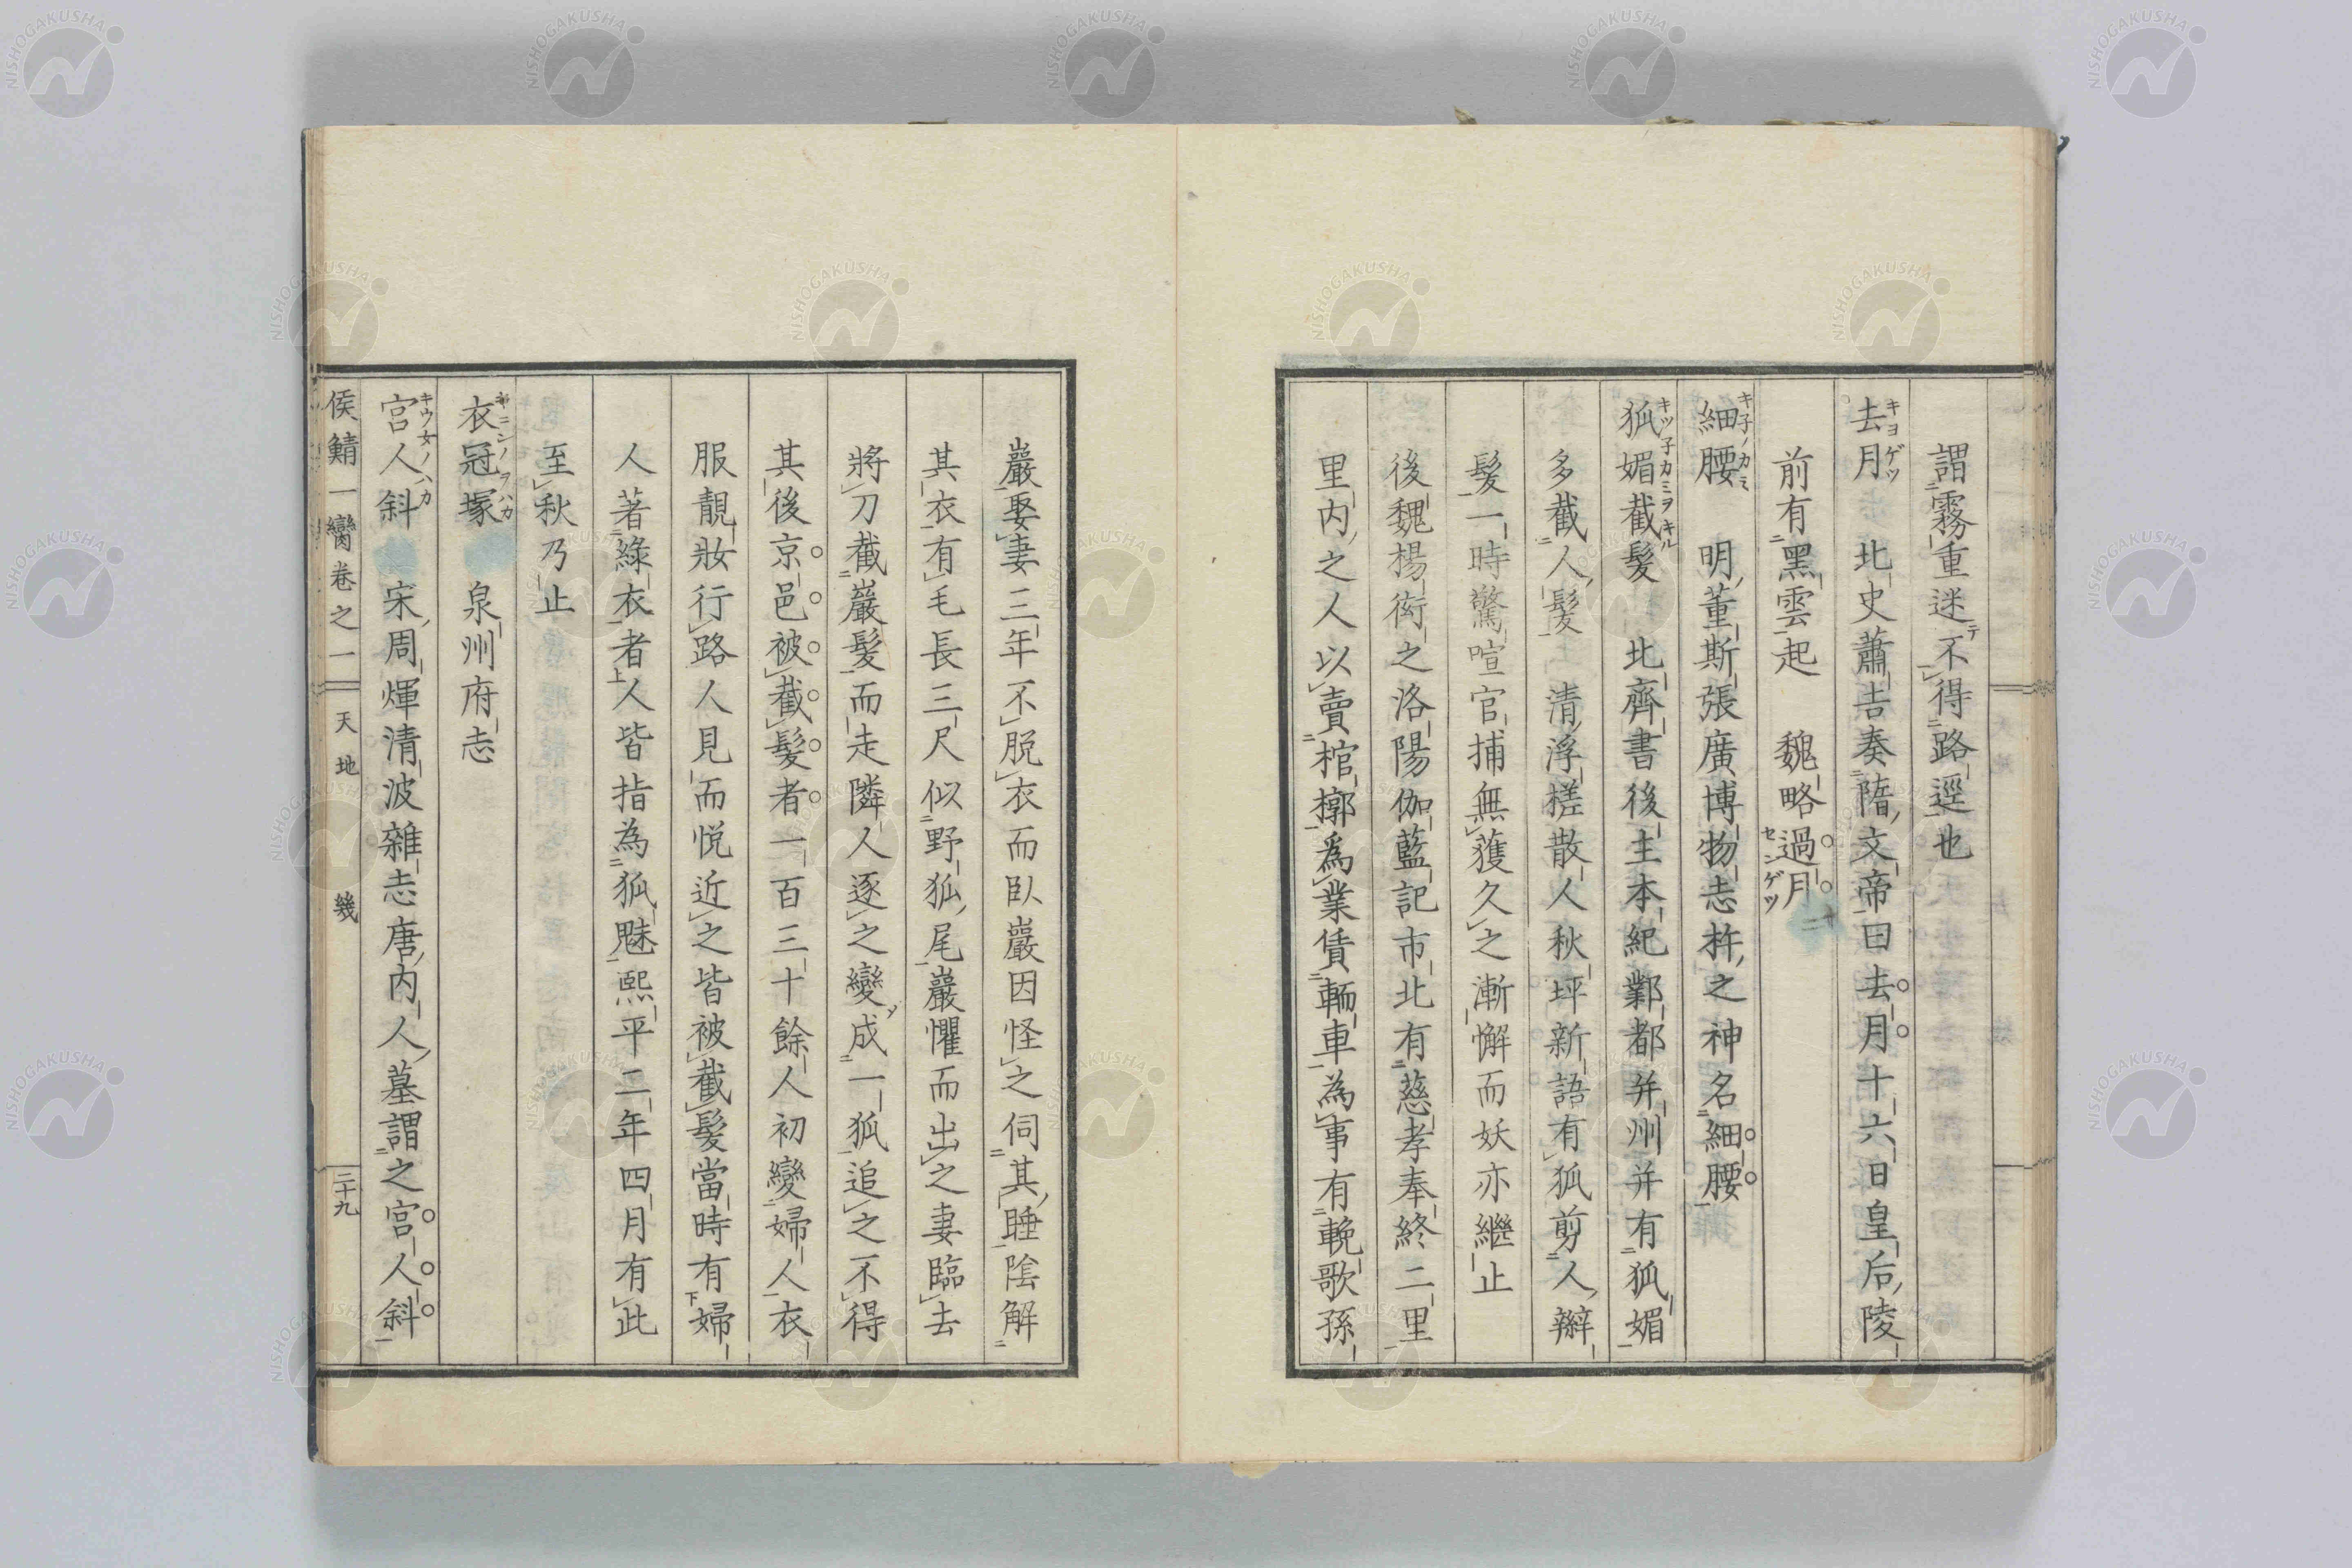 謂霧重迷不得路逕也
去月　北史蕭吉奏隋文帝曰去月十六日皇后陵
前有黑雲起　魏略過月
細腰　明董斯張廣博物志杵之神名細腰
狐媚截髮　北齊書後主本紀鄴都并州并有狐媚
多截人髮　清浮槎散人秋坪新語有狐剪人辮
髮一時驚喧官捕無獲久之漸懈而妖亦繼止
後魏楊衒之洛陽伽藍記市北有慈孝奉終二里
里内之人以賣棺槨爲業賃輀車為事有輓歌孫
巖娶妻三年不脱衣而臥巖因怪之伺其睡陰解
其衣有毛長三尺似野狐尾巖懼而出之妻臨去
將刀截巖髮而走隣人逐之變成一狐追之不得
其後京邑被截髮者一百三十餘人初變婦人衣
服靚妝行路人見而悦近之皆被截髮當時有婦
人著綠衣者人皆指為狐魅熙平二年四月有此
至秋乃止
衣冠塚　泉州府志
宮人斜　宋周煇清波雜志唐内人墓謂之宮人斜
侯鯖一臠卷之一　天地　幾　二十九
キヨゲツ
センゲツ
キ子ノカミ
キツ子カミヲキル
キウ女ノハカ
NISHOGAKUSHA